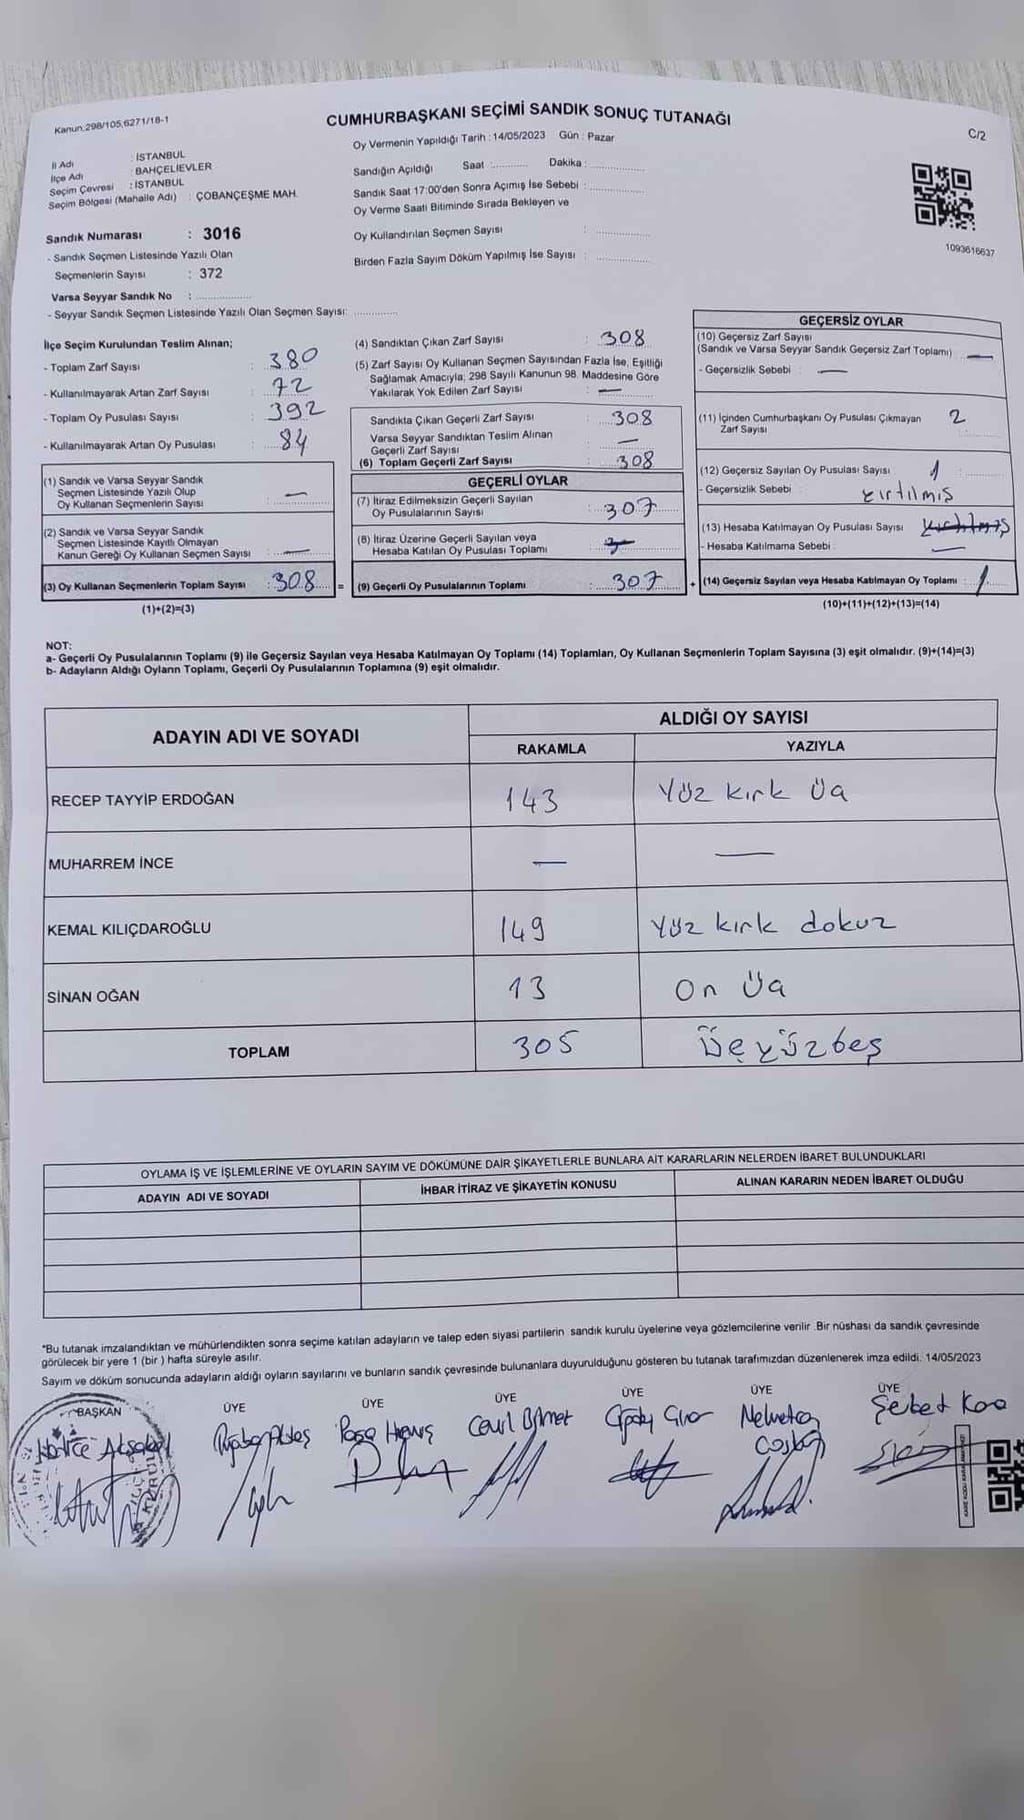 Kanun;298/105,6271/18-1
CUMHURBAŞKANI SEÇİMİ SANDIK SONUÇ TUTANAĞI
C/2
Oy Vermenin Yapıldığı Tarih : 14/05/2023 Gün : Pazar
İl Adı : İSTANBUL
İlçe Adı : BAHÇELİEVLER
Seçim Çevresi : İSTANBUL
Seçim Bölgesi (Mahalle Adı) : ÇOBANÇEŞME MAH.
Sandığın Açıldığı Saat :............ Dakika :
Sandık Saat 17:00'den Sonra Açımış İse Sebebi :
Oy Verme Saati Bitiminde Sırada Bekleyen ve
Oy Kullandırılan Seçmen Sayısı :
Birden Fazla Sayım Döküm Yapılmış İse Sayısı :
1093616637
Sandık Numarası : 3016
- Sandık Seçmen Listesinde Yazılı Olan
Seçmenlerin Sayısı : 372
Varsa Seyyar Sandık No :
- Seyyar Sandık Seçmen Listesinde Yazılı Olan Seçmen Sayısı:
İlçe Seçim Kurulundan Teslim Alınan;
- Toplam Zarf Sayısı : 380
- Kullanılmayarak Artan Zarf Sayısı : 72
- Toplam Oy Pusulası Sayısı : 392
- Kullanılmayarak Artan Oy Pusulası : 84
(1) Sandık ve Varsa Seyyar Sandık
Seçmen Listesinde Yazılı Olup
Oy Kullanan Seçmenlerin Sayısı : —
(2) Sandık ve Varsa Seyyar Sandık
Seçmen Listesinde Kayıtlı Olmayan
Kanun Gereği Oy Kullanan Seçmen Sayısı : —
(3) Oy Kullanan Seçmenlerin Toplam Sayısı : 308 =
(1)+(2)=(3)
(4) Sandıktan Çıkan Zarf Sayısı : 308
(5) Zarf Sayısı Oy Kullanan Seçmen Sayısından Fazla İse, Eşitliği
Sağlamak Amacıyla; 298 Sayılı Kanunun 98. Maddesine Göre
Yakılarak Yok Edilen Zarf Sayısı : —
Sandıkta Çıkan Geçerli Zarf Sayısı : 308
Varsa Seyyar Sandıktan Teslim Alınan
Geçerli Zarf Sayısı : —
(6) Toplam Geçerli Zarf Sayısı : 308
GEÇERLİ OYLAR
(7) İtiraz Edilmeksizin Geçerli Sayılan
Oy Pusulalarının Sayısı : 307
(8) İtiraz Üzerine Geçerli Sayılan veya
Hesaba Katılan Oy Pusulası Toplamı : —
(9) Geçerli Oy Pusulalarının Toplamı : 307 +
GEÇERSİZ OYLAR
(10) Geçersiz Zarf Sayısı
(Sandık ve Varsa Seyyar Sandık Geçersiz Zarf Toplamı) —
- Geçersizlik Sebebi : —
(11) İçinden Cumhurbaşkanı Oy Pusulası Çıkmayan 2
Zarf Sayısı
(12) Geçersiz Sayılan Oy Pusulası Sayısı : 1
- Geçersizlik Sebebi : yırtılmış
(13) Hesaba Katılmayan Oy Pusulası Sayısı : yırtılmış
- Hesaba Katılmama Sebebi : —
(14) Geçersiz Sayılan veya Hesaba Katılmayan Oy Toplamı : 1
(10)+(11)+(12)+(13)=(14)
NOT:
a- Geçerli Oy Pusulalarının Toplamı (9) ile Geçersiz Sayılan veya Hesaba Katılmayan Oy Toplamı (14) Toplamları, Oy Kullanan Seçmenlerin Toplam Sayısına (3) eşit olmalıdır. (9)+(14)=(3)
b- Adayların Aldığı Oyların Toplamı, Geçerli Oy Pusulalarının Toplamına (9) eşit olmalıdır.
ADAYIN ADI VE SOYADI
ALDIĞI OY SAYISI
RAKAMLA YAZIYLA
RECEP TAYYİP ERDOĞAN 143 Yüz kırk Üç
MUHARREM İNCE — —
KEMAL KILIÇDAROĞLU 149 Yüz kırk dokuz
SİNAN OĞAN 13 On Üç
TOPLAM 305 Üçyüzbeş
OYLAMA İŞ VE İŞLEMLERİNE VE OYLARIN SAYIM VE DÖKÜMÜNE DAİR ŞİKAYETLERLE BUNLARA AİT KARARLARIN NELERDEN İBARET BULUNDUKLARI
ADAYIN ADI VE SOYADI İHBAR İTİRAZ VE ŞİKAYETİN KONUSU ALINAN KARARIN NEDEN İBARET OLDUĞU
*Bu tutanak imzalandıktan ve mühürlendikten sonra seçime katılan adayların ve talep eden siyasi partilerin sandık kurulu üyelerine veya gözlemcilerine verilir .Bir nüshası da sandık çevresinde
görülecek bir yere 1 (bir ) hafta süreyle asılır.
Sayım ve döküm sonucunda adayların aldığı oyların sayılarını ve bunların sandık çevresinde bulunanlara duyurulduğunu gösteren bu tutanak tarafımızdan düzenlenerek imza edildi. 14/05/2023
BAŞKAN ÜYE ÜYE ÜYE ÜYE ÜYE ÜYE
Hatice